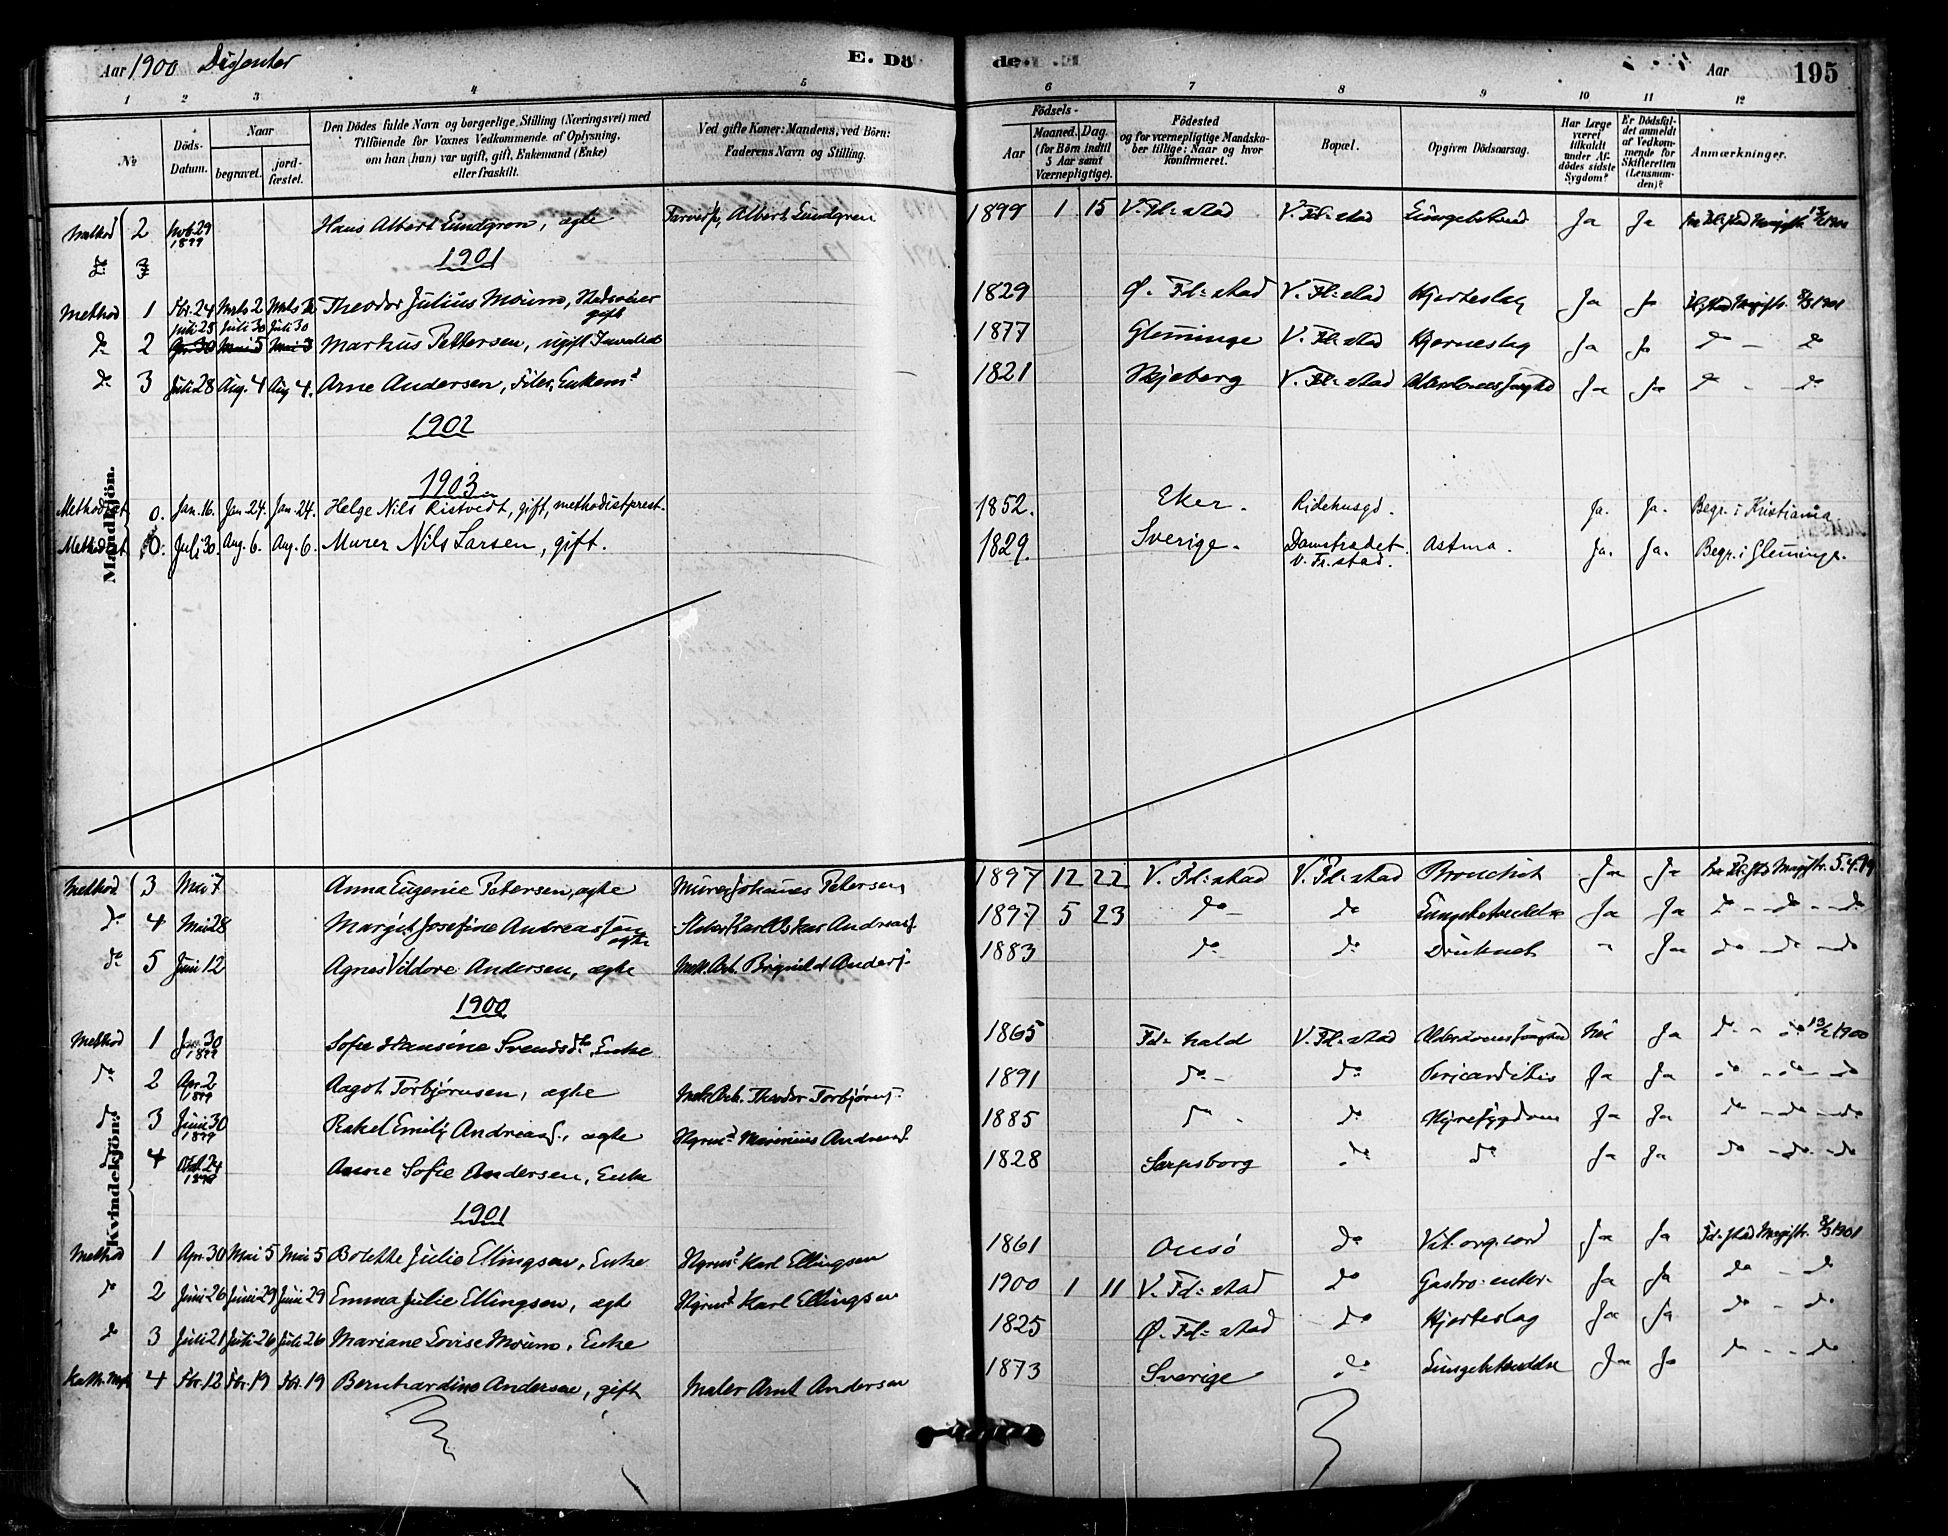 Aar 1900 Dissenter E. Dö
de. E. Aar 195
1 2 3 4 5 6 7 8 9 10 11 12
No
Döds-Datum.
Naar
begravet.
jord-fæstet.
Den Dödes fulde Navn og borgerlige Stilling (Næringsvei) med
Tilföiende for Voxnes Vedkommende af Oplysning,
om han (hun) var ugift, gift, Enkemand (Enke)
eller fraskilt.
Ved gifte Koner: Mandens, ved Börn:
Faderens Navn og Stilling.
Födsels-
Aar
Maaned. Dag.
(for Börn indtil
5 Aar samt
Værnepligtige).
Födested
og for værnepligtige Mandska-
ber tillige: Naar og hvor
Konfirmeret.
Bopæl.
Opgiven Dödsaarsag.
Har Læge
været
tilkaldt
under Af-
dödes sidste
Sygdom?
Er Dödsfal-
det anmeldt
af Vedkom-
mende for
Skifteretten
(Lensman-
den)?
Anmærkninger.
Mandkjön.
Method 2 Nov. 29 1899 Hans Albert Lundgren, ægte Albert Lundgren 1899 1 15 V. Fd:stad V. Fd:stad Ja Ja
do 3
1901
Method 1 Fbr. 24 Mrts 2 Mrts 2 Theodor Julius Moum, gift 1829 Ø. Fd:stad V. Fd:stad Hjerteslag Ja Ja
do 2 Juli 28 Juli 30 Juli 30 Markus Pettersen, ugift 1877 Glemminge V. Fd:stad Hjerneslag Ja Ja do - do
Apr. 30 Mai 5 Mai 3
do 3 Juli 28 Aug. 4 Aug 4. Arne Andersen, Enkemd 1821 Skjeberg V. Fd:stad Ja Ja do - do
1902
1903
Methodist 0. Jan. 16. Jan. 24. Jan. 24. Helge Nils Ristvedt, gift, methodistprest. 1852. Eker. Ridehusgd. Ja. Ja. Begr. i Kristiania
Methodist 0. Juli 30. Aug. 6. Aug. 6. Murer Nils Larsen, gift. 1829. Sverige. Damstrædet V. Fr.stad. Astma. Ja. Ja. Begr. i Glemminge.
Kvindekjön.
Method 3 Mai 7 Anna Eugenie Petersen, ægte Murer Johannes Petersen 1897 12 22 V. Fd:stad V. Fd:stad Bronchit Ja Ja
do 4 Mai 28 Margit Josefine Andreassen ægte 1897 5 23 do do Ja Ja do - do - do
do 5 Juni 12 Agnes Andersen, ægte 1883 do do Druknet " Ja do - do - do
1900
Method 1 30 1899 Sofie Hansine Svendsdtr Enke 1865 Fd:hald V. Fd:stad Nei Ja do - do 1900
do 2 Apr. 2 1899 Aagot Torbjørnsen, ægte Theodor Torbjørns. 1891 do do Pericarditis Ja Ja do - do - do
do 3 Juni 30 1899 Rakel Emily Andreass., ægte 1885 do do Ja Ja do - do - do
do 4 24 1899 Anne Sofie Andersen, Enke 1828 Sarpsborg do do Ja Ja do - do - do
1901
Method 1 Apr. 30 Mai 5 Mai 5 Bolette Julie Ellingsen, Enke Karl Ellingsen 1861 Onsö do Vit. org. cord Ja Ja
do 2 Juni 26 Juni 29 Juni 29 Emma Julie Ellingsen, ægte Karl Ellingsen 1900 1 11 V. Fd:stad do Gastro-enter. Ja Ja do - do
do 3 Juli 21 Juli 26 Juli 26 Mariane Lovise Moum, Enke 1825 Ø. Fd:stad do Hjerteslag Ja Ja do - do
4 Fbr. 12 Fbr. 19 Fbr. 19 Bernhardine Andersen, gift Maler Arnt Andersen 1873 Sverige do Ja Ja do - - do